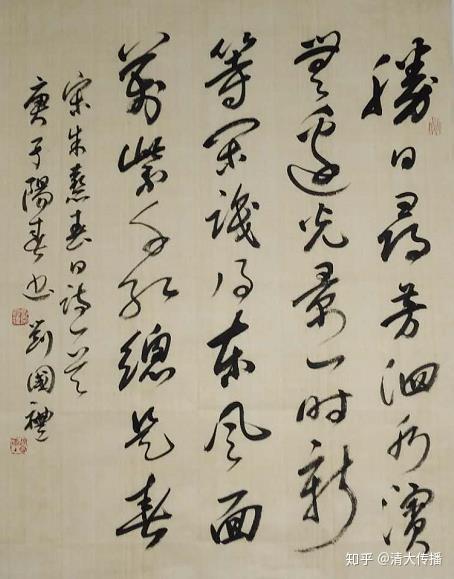 勝日尋芳泗水濱
無邊光景一時新
等閑識得東風面
萬紫千紅總是春
宋朱熹春日詩一首
庚子陽春書 劉國禮
知乎 @清大传播